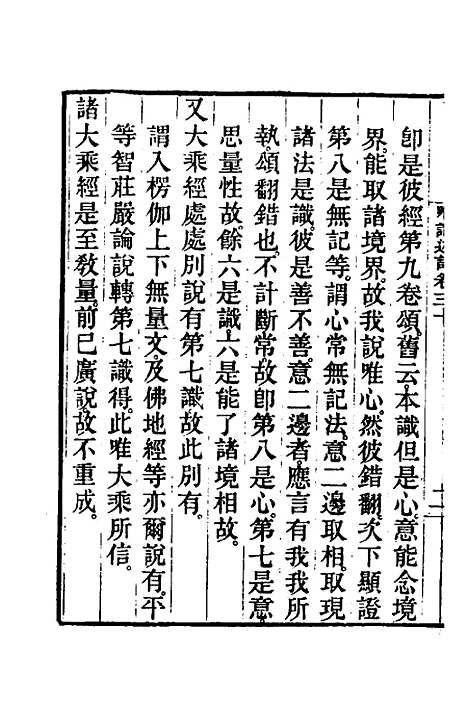 即是彼經第九卷頌。舊云本識但是心。意能念境
界。能取諸境界。故我說唯心。然彼錯翻。次下顯證
第八是無記等。謂心常無記法。意二邊取相。取現
諸法是識。彼是善不善。意二邊者。應言有我我所
執。頌翻錯也。不計斷常。故卽第八是心。第七是意。
思量性故。餘六是識。六是能了諸境相故。
又大乘經處處別說有第七識故此別有。
謂入楞伽上下無量文。及佛地經等亦爾說有。平
等智莊嚴論說轉第七識得。此唯大乘所信。
諸大乘經是至敎量。前已廣說。故不重成。